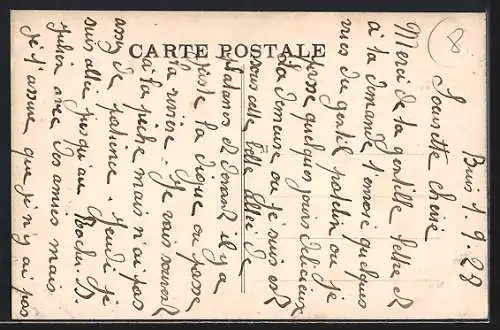 CARTE POSTALE
8
Buis 1.9.28
Soeurette chérie
Merci de ta gentille lettre et
à ta demande t'envoie quelques
vues du gentil patelin ou je
passe quelques jours délicieux
La demeure ou je suis est
sous cette belle allée de
platanes et devant il y a
juste la digue ou passe
la rivière. Je vais souvent
à la pêche mais n'ai pas
assez de patience. Jeudi je
suis allée jusqu'au Rocher St
Julien avec des amies mais
je t'assure que je n'y ai pas